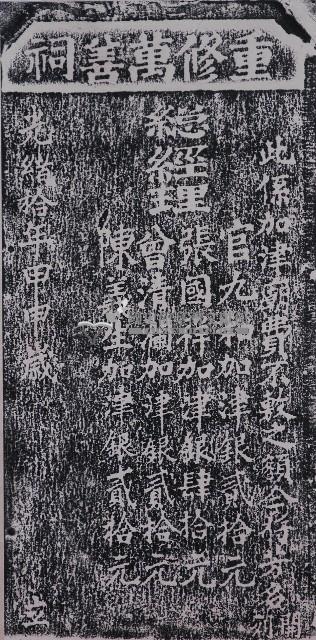 重修萬善祠
此係加津廟費不敷之額合將芳名列明
總經理
官九和加津銀貳拾元
張國祥加津銀肆拾元
曾清備加津銀貳拾元
陳義生加津銀貳拾元
光緒拾年甲申歲 立